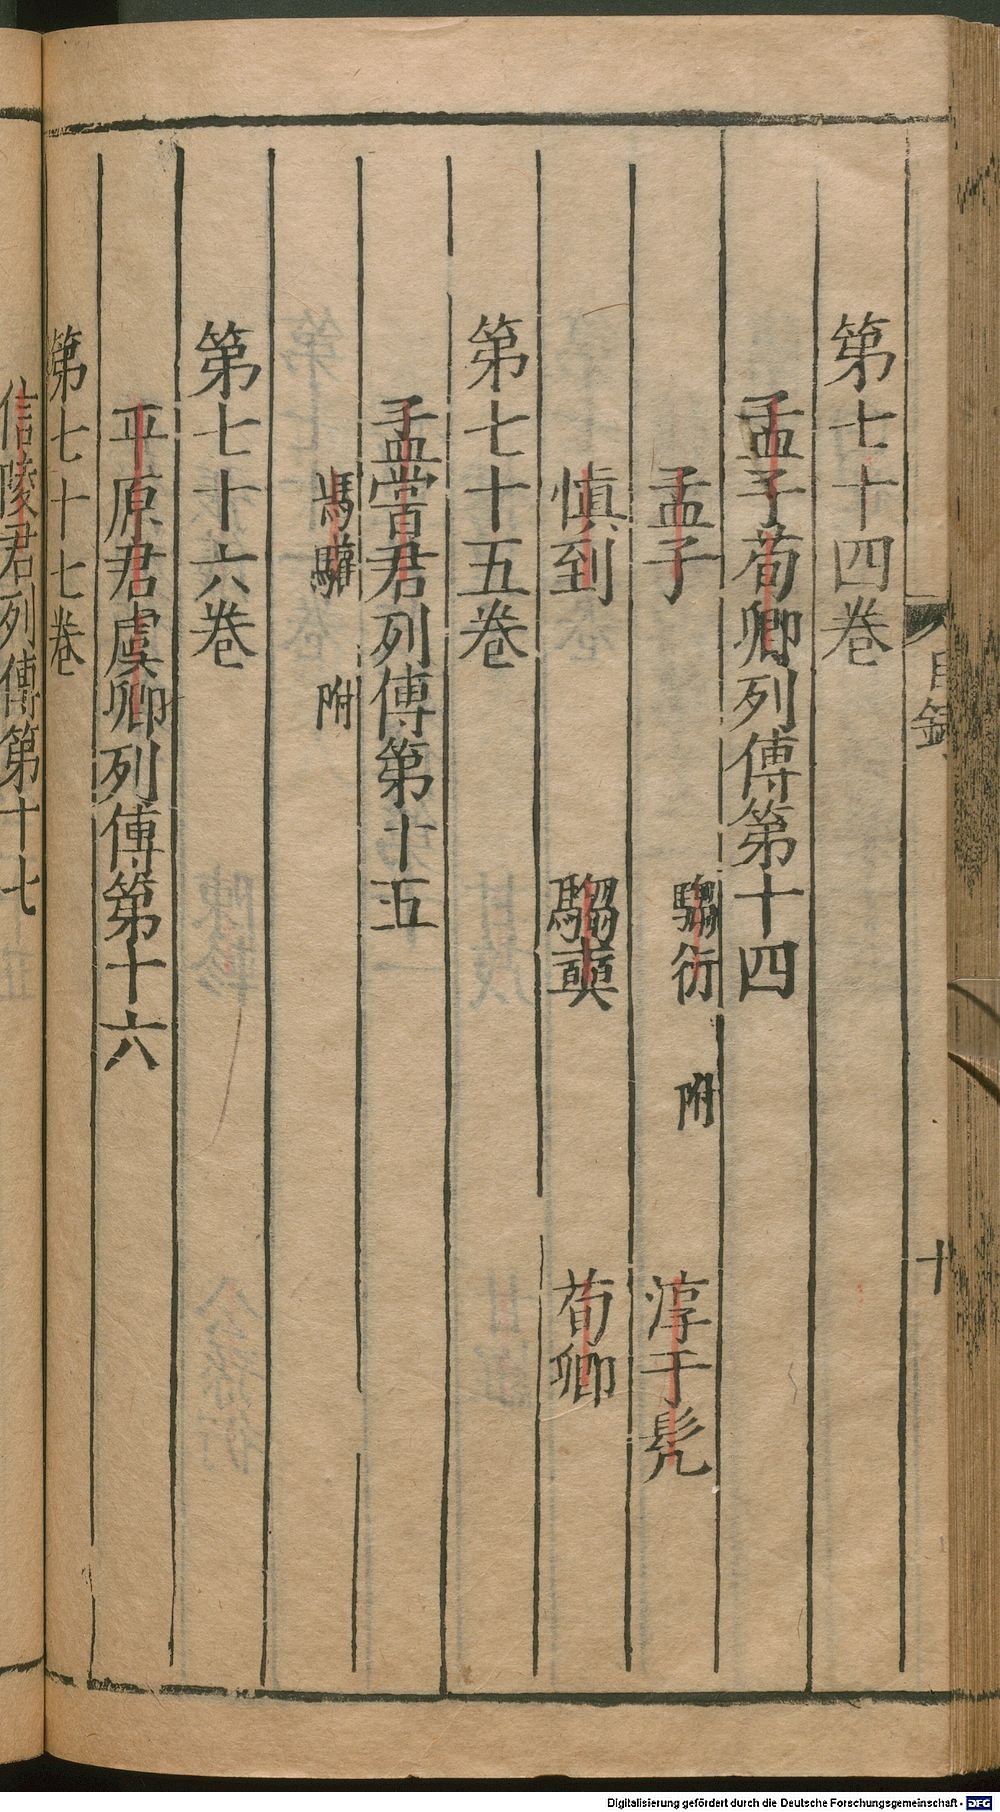 目錄
十
第七十四卷
孟子荀卿列傳第十四
孟子 騶衍 附 淳于髡
慎到 騶奭 荀卿
第七十五卷
孟嘗君列傳第十五
馮驩 附
第七十六卷
平原君虞卿列傳第十六
第七十七卷
信陵君列傳第十七
Digitalisierung gefördert durch die Deutsche Forschungsgemeinschaft - DFG